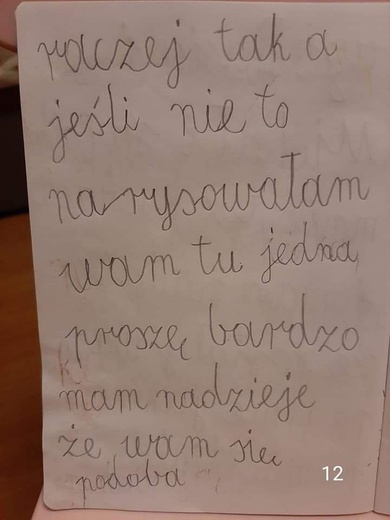 raczej tak a
jeśli nie to
narysowałam
wam tu jedną
proszę bardzo
mam nadzieje
że wam się
podoba
12